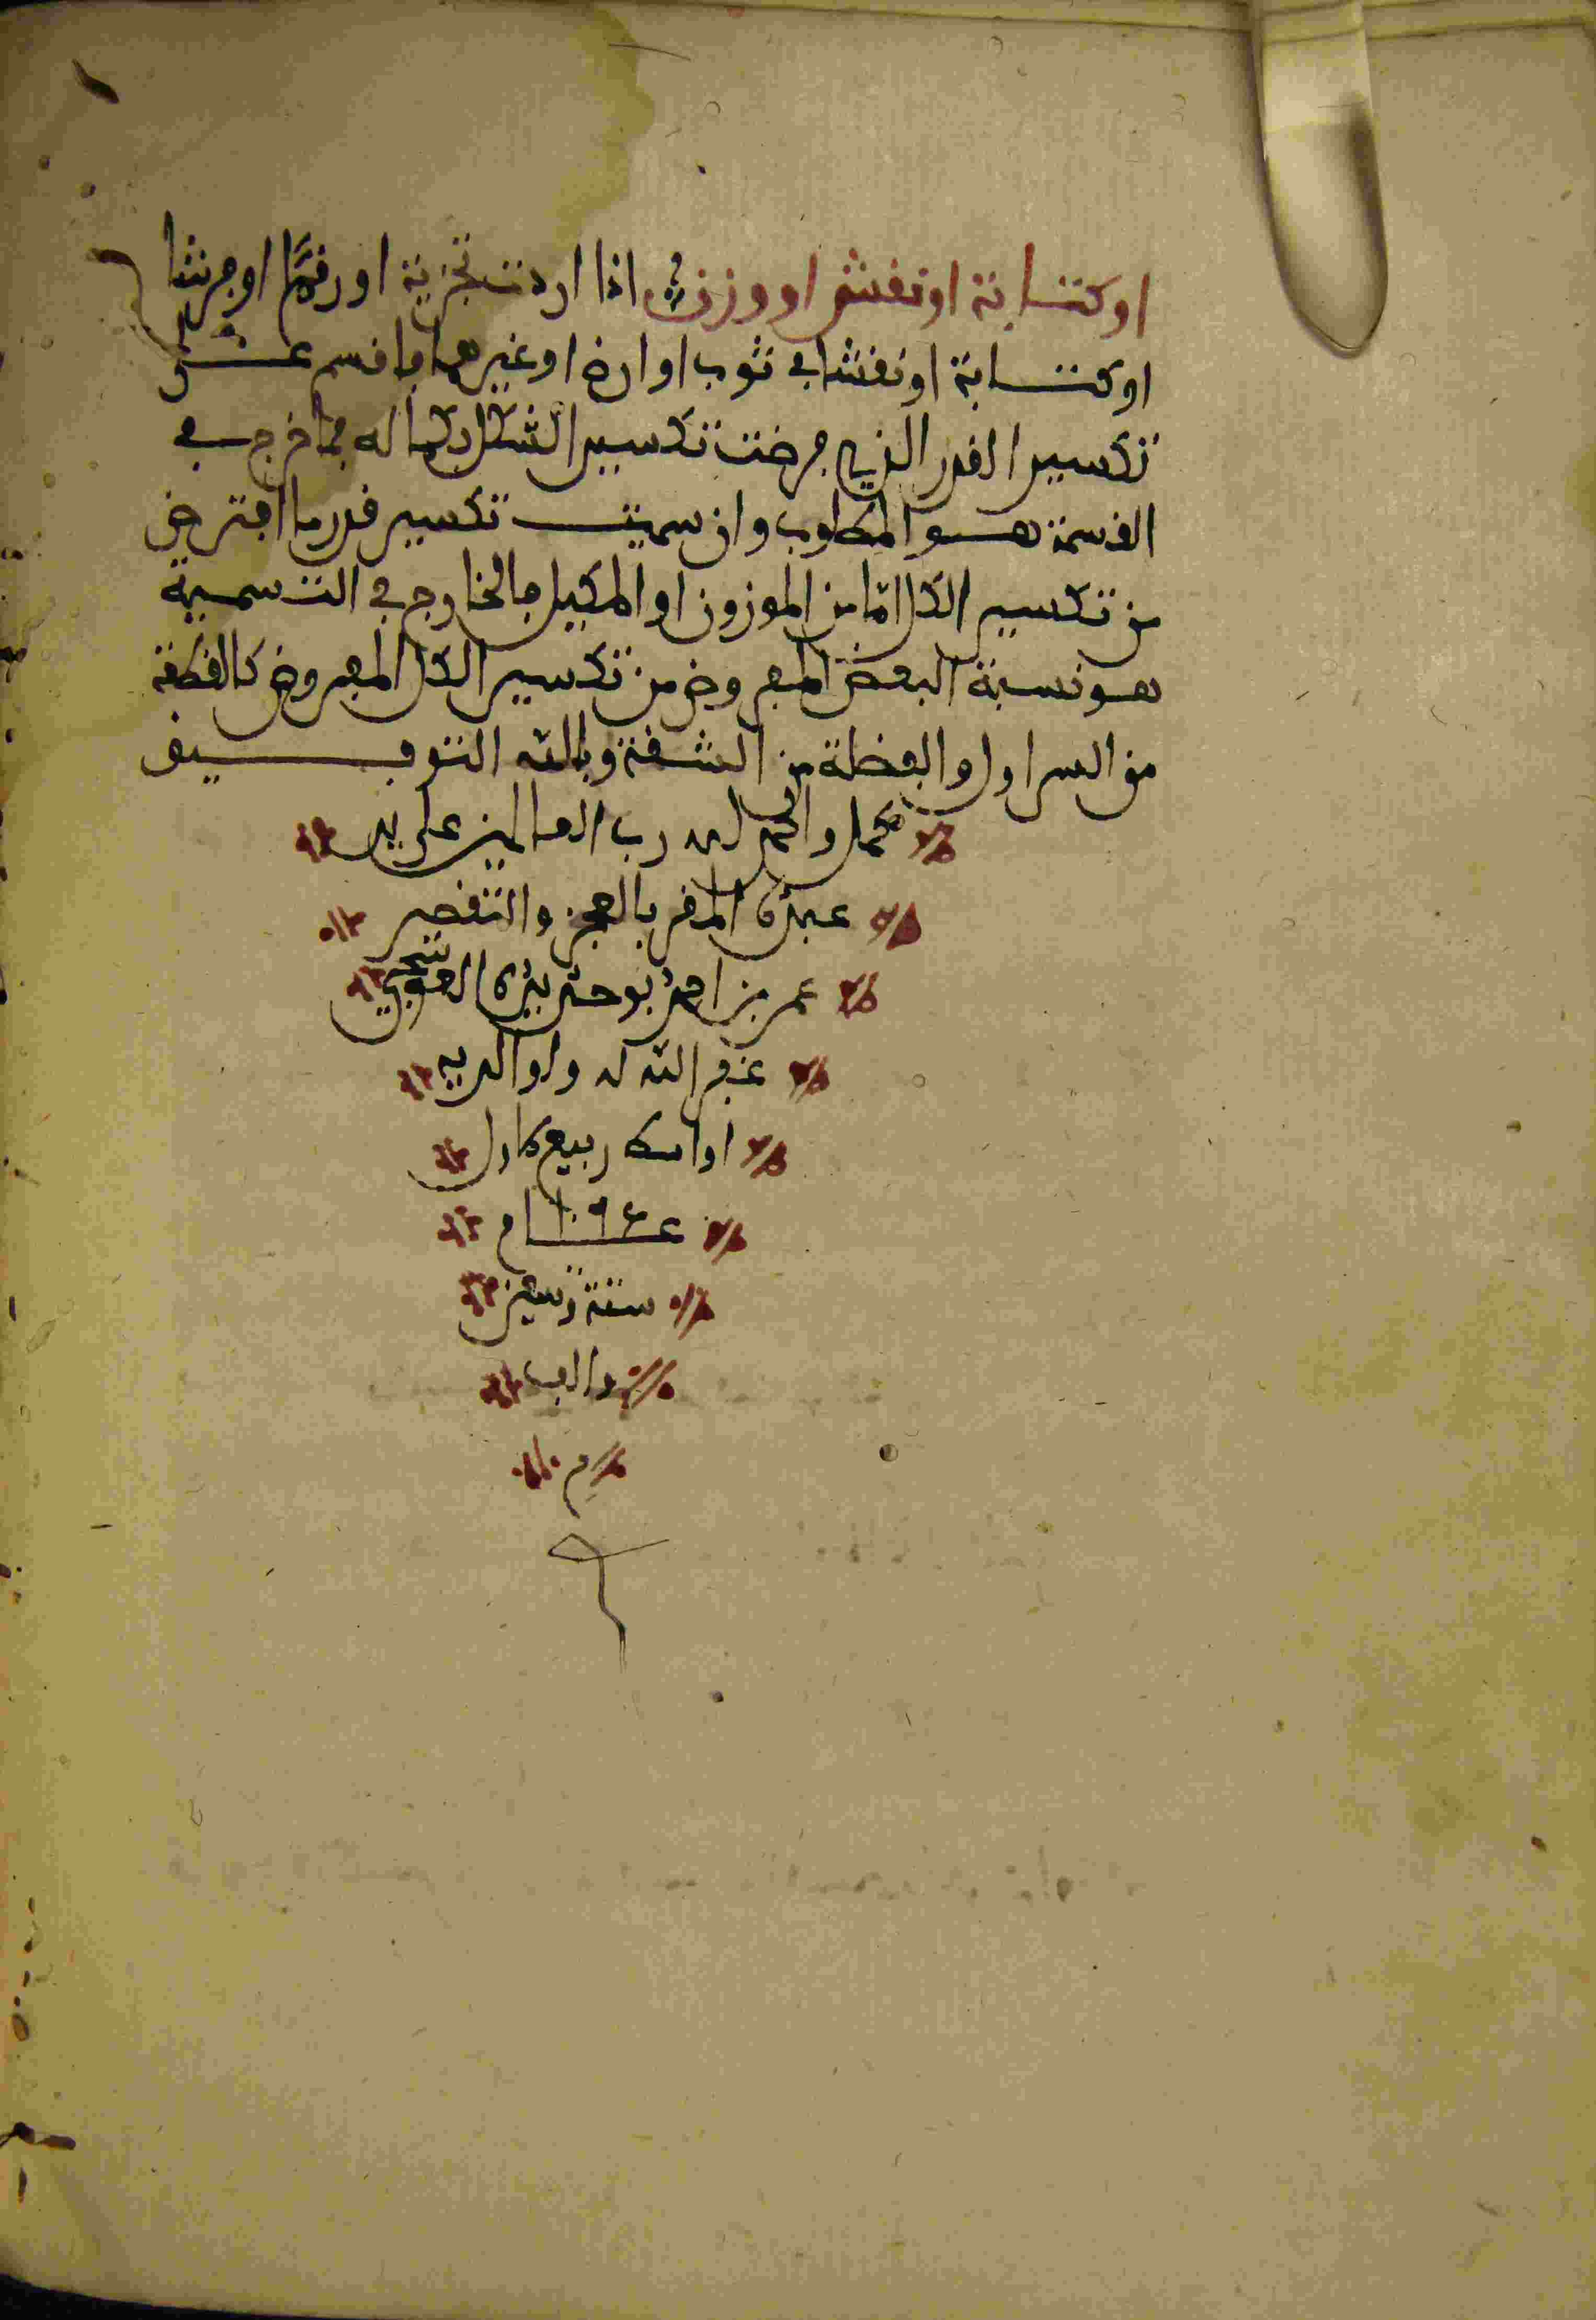 او كتابة او نقش او وزنت اذا اردت تجزية او رقما او فرشا
او كتابة او نقشا في ثوب او ارض او غيرهما فاقسم على
تكسير القدر الذي فرضت تكسير الشكل بكماله فما خرج في
القسمة هو المطلوب وان سميت تكسير قدر ما افترض
من تكسير الكل اما من الموزون او المكيل فالخارج في التسمية
هو نسبة البعض المفروض من تكسير الكل المفروض كالقطعة
من السراول والفضلة من الشقة وبالله التوفيق
كمل والحمد لله رب العالمين على يد
عبيده المقر بالعجز والتقصير
عمر بن احمد
غفر الله له ولوالديه
اواسط ربيع الاول
عام ١٠٩٤
سنة وتسعين
والف
م